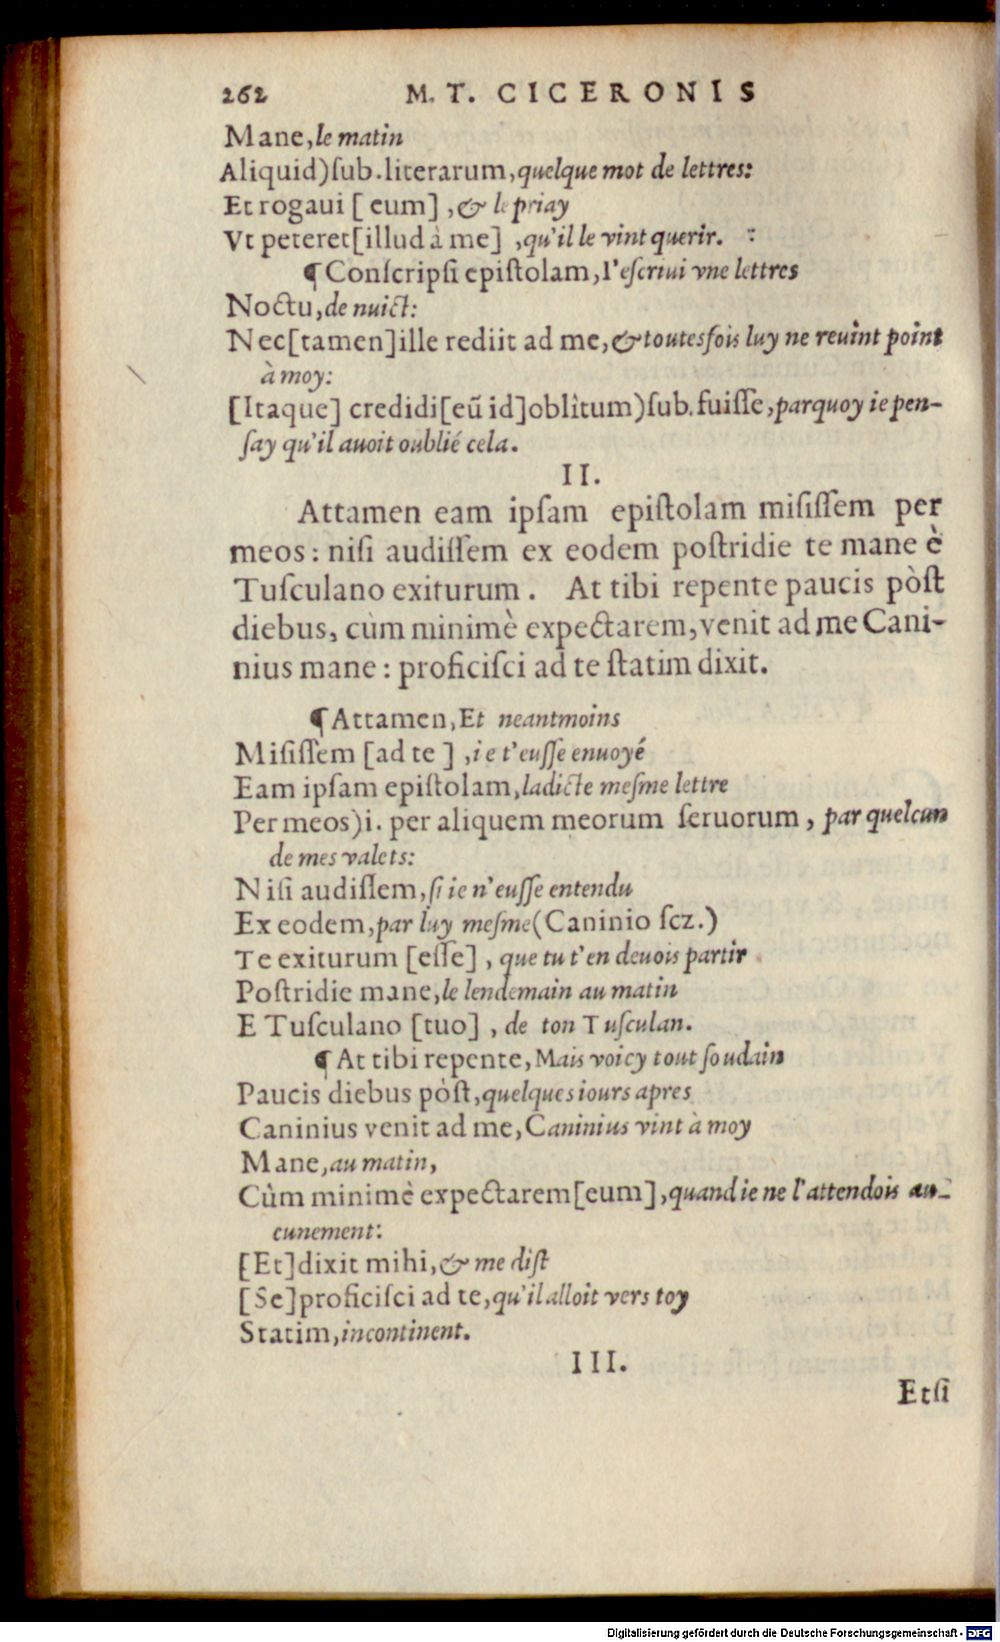 262 M. T. CICERONIS
Mane, le matin
Aliquid) ſub. literarum, quelque mot de lettres:
Et rogaui [ eum] , & le priay
Vt peteret [illud à me] , qu'il le vint querir. :
¶ Conſcripſi epiſtolam, I'eſcriui vne lettres
Noctu, de nuict:
Nec [tamen] ille rediit ad me, & toutesfois luy ne reuint point
à moy:
[Itaque] credidi [eũ id] oblîtum) ſub. fuiſſe, parquoy ie pen-
ſay qu'il auoit oublié cela.
II.
Attamen eam ipſam epiſtolam miſiſſem per
meos : niſi audiſſem ex eodem poſtridie te mane è
Tuſculano exiturum . At tibi repente paucis pòſt
diebus, cùm minimè expectarem, venit ad me Cani-
nius mane : proficiſci ad te ſtatim dixit.
¶ Attamen, Et neantmoins
Miſiſſem [ad te ] , ie t'euſſe enuoyé
Eam ipſam epiſtolam, ladicte meſme lettre
Per meos) i. per aliquem meorum ſeruorum , par quelcun
de mes valets:
Niſi audiſſem, ſi ie n'euſſe entendu
Ex eodem, par luy meſme (Caninio ſcz.)
Te exiturum [eſſe] , que tu t'en deuois partir
Poſtridie mane, le lendemain au matin
E Tuſculano [tuo] , de ton Tuſculan.
¶ At tibi repente, Mais voicy tout ſoudain
Paucis diebus pòſt, quelques iours apres
Caninius venit ad me, Caninius vint à moy
Mane, au matin,
Cùm minimè expectarem [eum] , quand ie ne l'attendois au-
cunement:
[Et] dixit mihi, & me diſt
[Se] proficiſci ad te, qu'il alloit vers toy
Statim, incontinent.
III.
Etſi
Digitalisierung gefördert durch die Deutsche Forschungsgemeinschaft - DFG